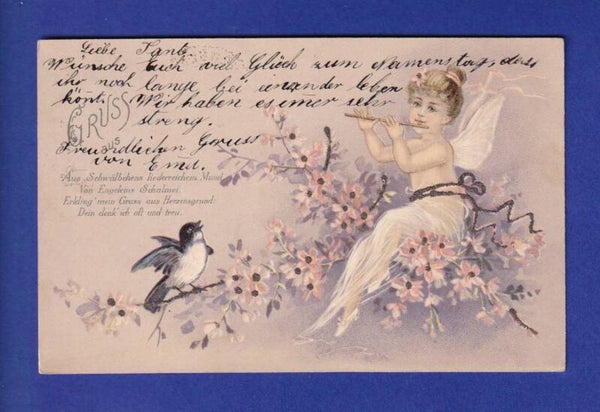 Liebe Tante
Wünsche Euch viel Glück zum Namenstag, dass
ihr noch lange bei einander leben
könt. Wir haben es imer sehr
streng.
GRUSS
aus
Freundlichen Gruss
von Emil.
Aus Schwälbchens liederreichem Mund,
Von Engeleins Schalmei
Erkling' mein Gruss aus Herzensgrund:
Dein denk' ich oft und treu.